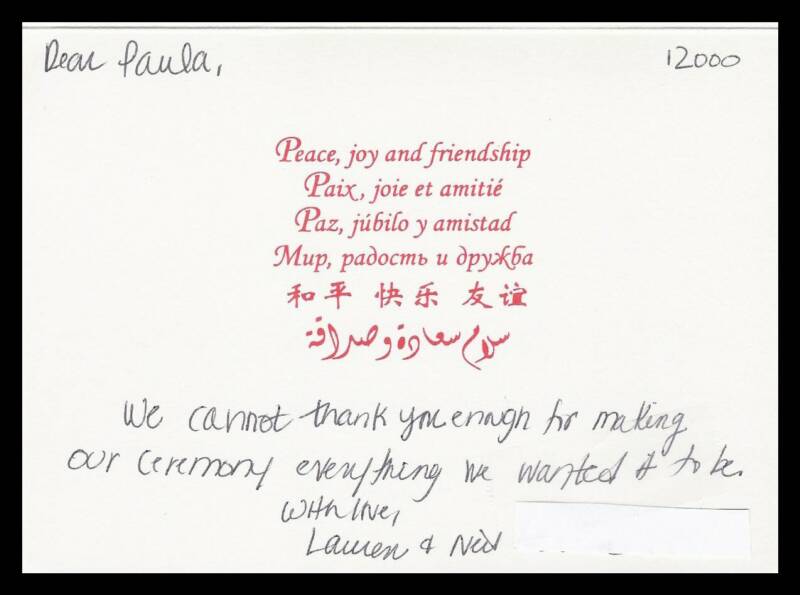 Dear Paula,
12000
Peace, joy and friendship
Paix, joie et amitié
Paz, júbilo y amistad
Мир, радость и дружба
和平 快乐 友谊
سلام سعادة وصداقة
We cannot thank you enough for making
our ceremony everything we wanted it to be.
With love,
Lauren & Ned